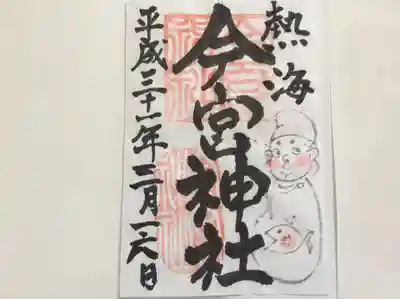 熱海
今宮神社
平成三十一年三月十六日